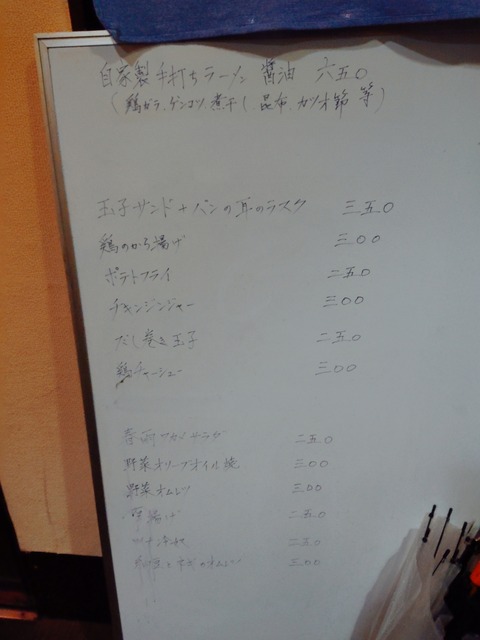 自家製手打ちラーメン 醤油 六五〇
(鶏ガラ、ゲンコツ、煮干し、昆布、カツオ節 等)
玉子サンド+パンの耳のラスク 三五〇
鶏のから揚げ 三〇〇
ポテトフライ 二五〇
チキンジンジャー 三〇〇
だし巻き玉子 二五〇
鶏チャーシュー 三〇〇
春雨 サラダ 二五〇
野菜オリーブオイル焼 三〇〇
野菜オムレツ 三〇〇
厚揚げ 二五〇
二五〇
とネギのオムレツ 三〇〇